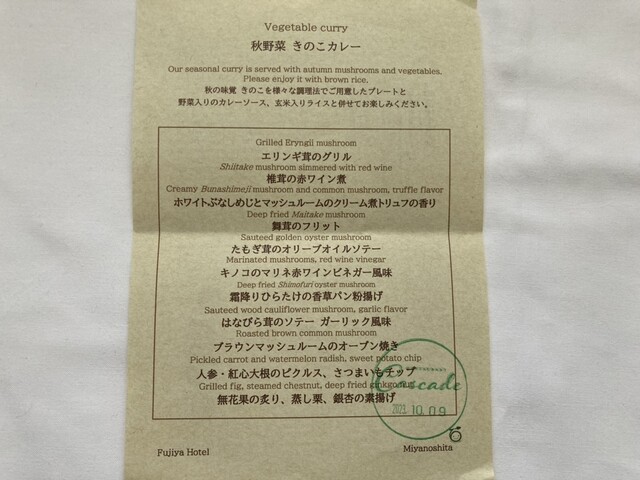 Vegetable curry
秋野菜 きのこカレー
Our seasonal curry is served with autumn mushrooms and vegetables.
Please enjoy it with brown rice.
秋の味覚 きのこを様々な調理法でご用意したプレートと
野菜入りのカレーソース、玄米入りライスと併せてお楽しみください。
Grilled Eryngii mushroom
エリンギ茸のグリル
Shiitake mushroom simmered with red wine
椎茸の赤ワイン煮
Creamy Bunashimeji mushroom and common mushroom, truffle flavor
ホワイトぶなしめじとマッシュルームのクリーム煮トリュフの香り
Deep fried Maitake mushroom
舞茸のフリット
Sauteed golden oyster mushroom
たもぎ茸のオリーブオイルソテー
Marinated mushrooms, red wine vinegar
キノコのマリネ赤ワインビネガー風味
Deep fried Shimofuri oyster mushroom
霜降りひらたけの香草パン粉揚げ
Sauteed wood cauliflower mushroom, garlic flavor
はなびら茸のソテー ガーリック風味
Roasted brown common mushroom
ブラウンマッシュルームのオーブン焼き
Pickled carrot and watermelon radish, sweet potato chip
人参・紅心大根のピクルス、さつまいもチップ
Grilled fig, steamed chestnut, deep fried ginkgo nut
無花果の炙り、蒸し栗、銀杏の素揚げ
Cascade
2023. 10. 09
Fujiya Hotel
Miyanoshita